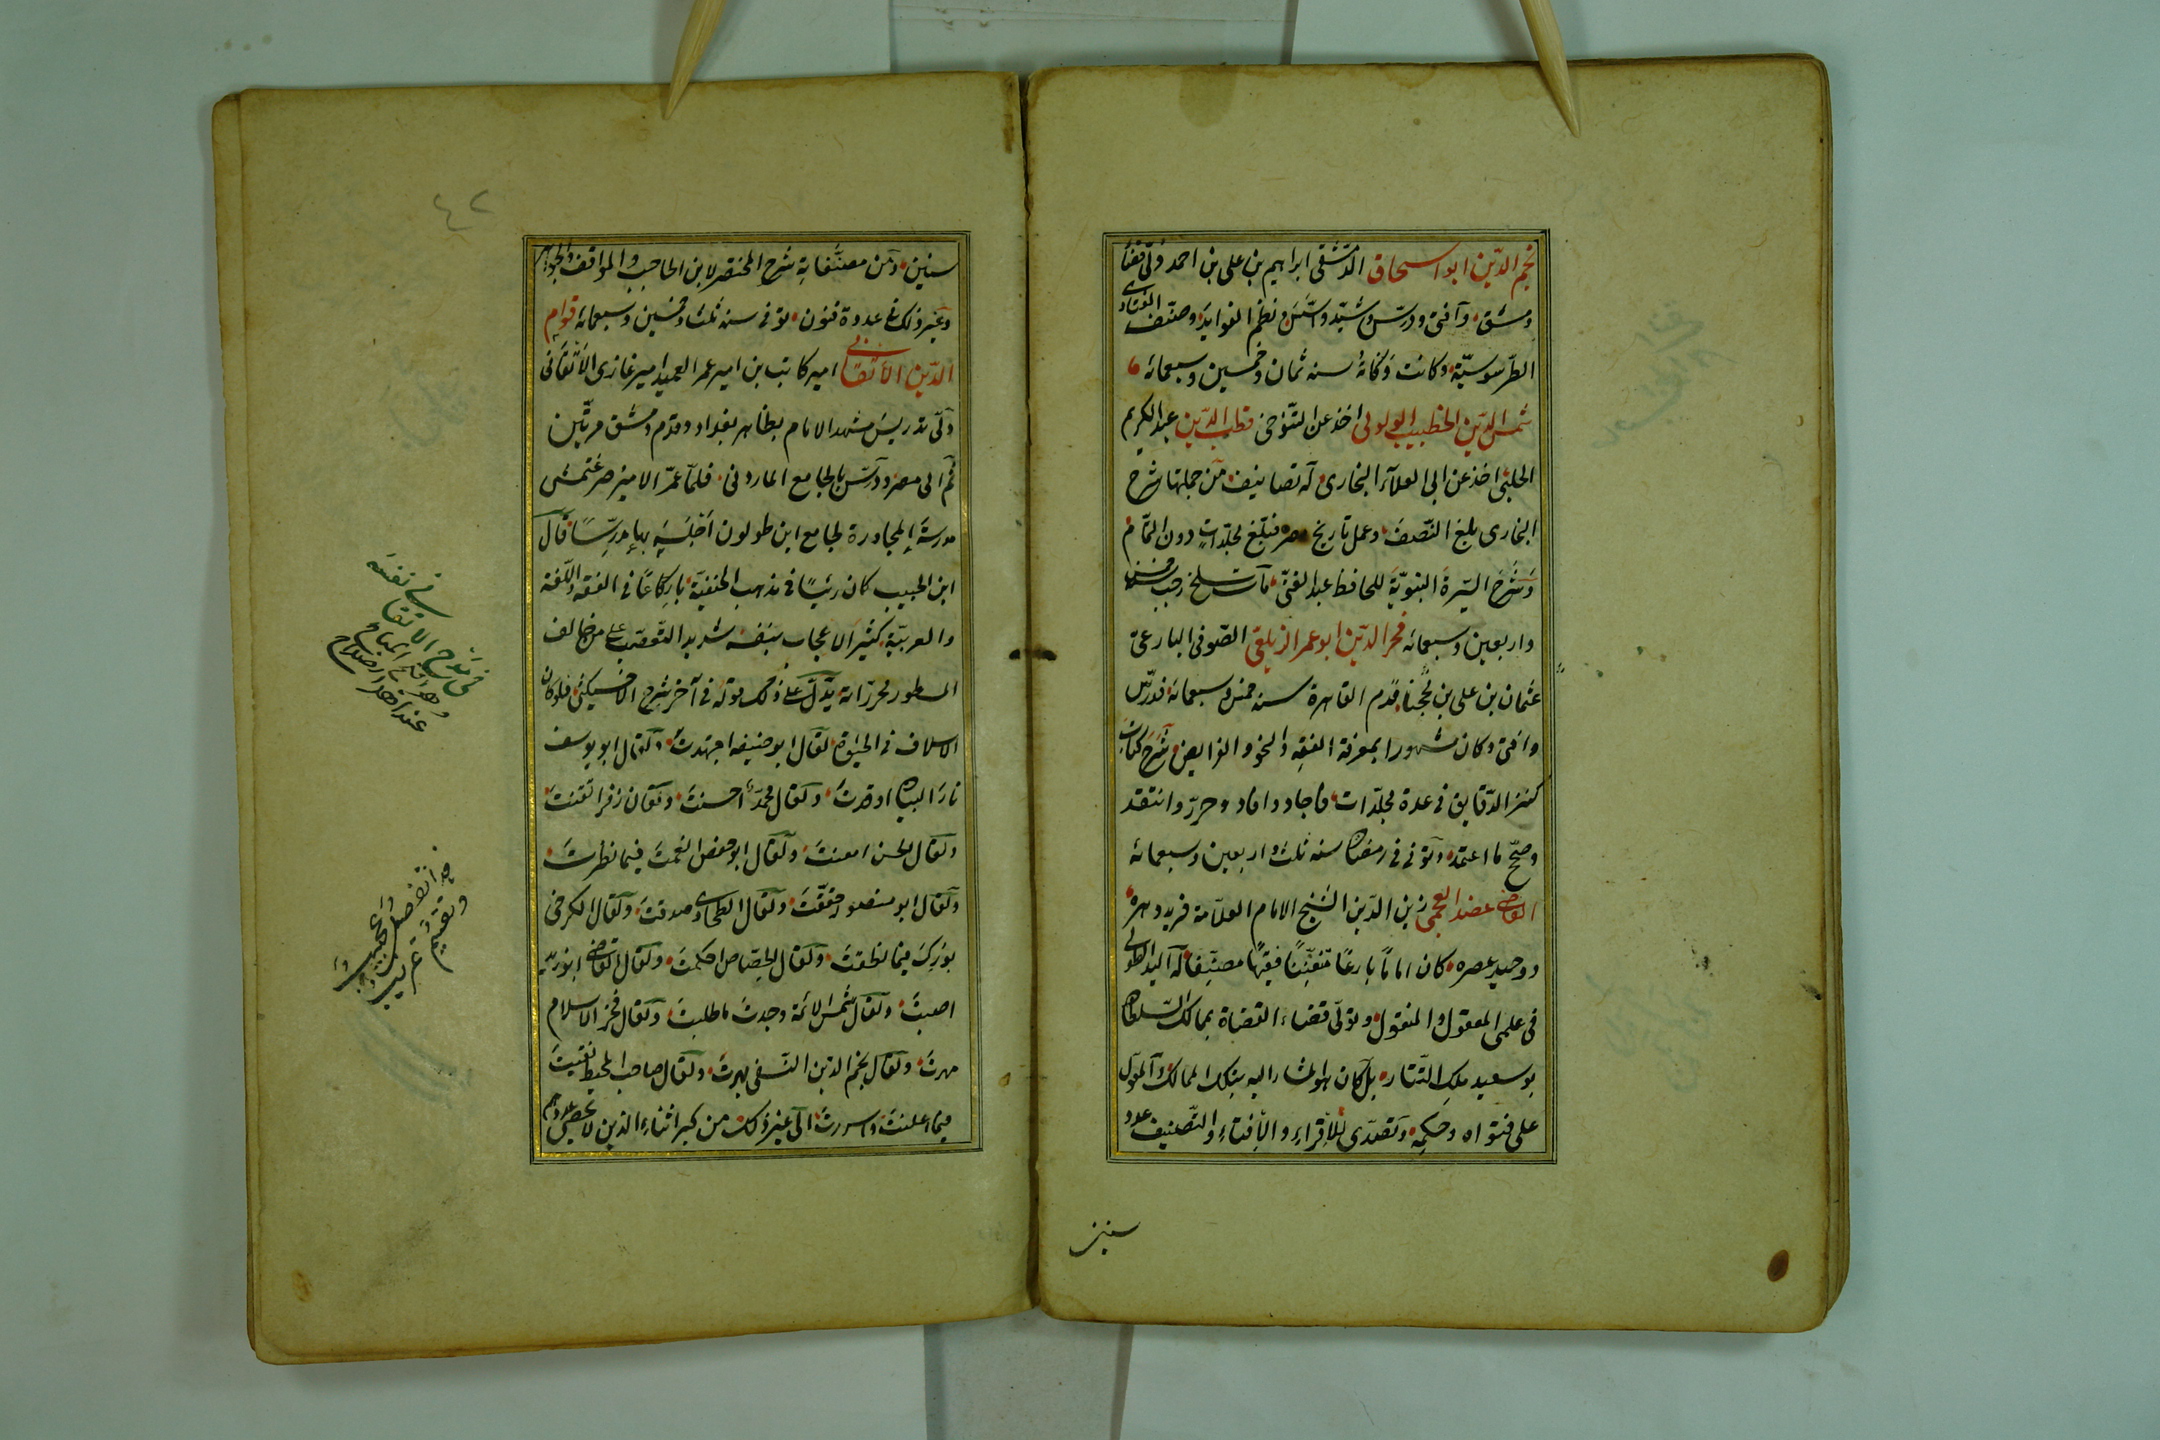 نجم الدّين ابو اسحاق الدّمشقى ابراهيم بن على بن احمد ولّى قضاء
دمشق وأفتى ودرّس وشيّد وأسّس نظم الفوايد وصنّف الفتاوى
الطّرسوسيّة وكانت وفاته سنه ثمان وخمسين وسبعمائه
شمس الدّين الخطيب اخذ عن التّنوخى قطب الدّين عبد الكريم
الحلبى اخذ عن ابى العلآء البخارى له تصانيف من جملتها شرح
البخارى بلغ النّصف وعمل تاريخ مصر فبلغ مجلّدات دون التّمام
وشرح السّيرة النبويّة للحافظ عبد الغنّى مات سلخ رجب خمس
واربعين وسبعمائه فخر الدّين ابو عمر الزيلعى الصّوفى البارعى
عثمان بن على بن محجن قدم القاهرة سنه خمس وسبعمائه فدرّس
وافتى وكان مشهورا بمعرفة الفقه والنحو والفرايض وشرح كتاب
كنز الدّقايق فى عدة مجلّدات فاجاد وافاد وحرّر وانتقد
وصحّ ما اعتمد وتوّفى فى رمضان سنه ثلث واربعين وسبعمائه
القاضى عضد العجمى زين الدّين الشيخ الامام العلاّمة فريد دهره
ووحيد عصره كان اماماً بارعاً متفنّناً فقيهاً مصنّفا له اليد الطولى
فى علمى المعقول والمنقول وتولّى قضاء القضاة بممالك السّلطان
بو سعيد ملك التّتار بل كان هو المشار اليه بتلك الممالك والمعوّل
على فتواه وحكمه وتصدّى للاقراء والافتاء والتّصنيف عدد
سنين
٤٢
سنين ومن مصنّفاته شرح المختصر لابن الحاجب والمواقف والجواهر
وغير ذلك فى عدة فنون توفى سنه ثلث وخمسين وسبعمائه قوام
الدّين الاتقانى امير كاتب بن امير عمر العميد امير غازى الاتّقانى
ولّى تدريس مشهد الامام بظاهر بغداد وقدم دمشق مرّتين
ثم الى مصر ودرّس بالجامع الماردنى فلمّا عمّر الامير صرغتمش
مدرسة المجاورة لجامع ابن طولون اجلسه بها مدرّساً قال
ابن الحبيب كان رئيسًا فى مذهب الحنفيّة بارعاً فى الفقه واللّغة
والعربيّة كثير الاعجاب بنفسه شديد التّعصب على من خالف
المسطور يدلّ على ذلك قوله فى آخر شرح الاخسيكثى فلو كان
الاسلاف فى الحيوة لقال ابو حنيفه اجتهدت ولقال ابو يوسف
نار البيان اوقدت ولقال محمّد احسنت ولقال زفر اتقنت
ولقال الحسن امعنت ولقال ابو حفص انعمت فيما نظرت
ولقال ابو منصور حقّقت ولقال الطحاوى صدقت ولقال الكرخى
بورك فيما نطقت ولقال الجصّاص احكمت ولقال القاضى ابو زيد
اصبت ولقال شمس الائمة وجدت ما طلبت ولقال فخر الاسلام
مهرت ولقال نجم الدين النّسفى بهرت ولقال صاحب المحيط
فيما اعلنت واسررت الى غير ذلك من كبراثناء الذين لا يحصى عددهم